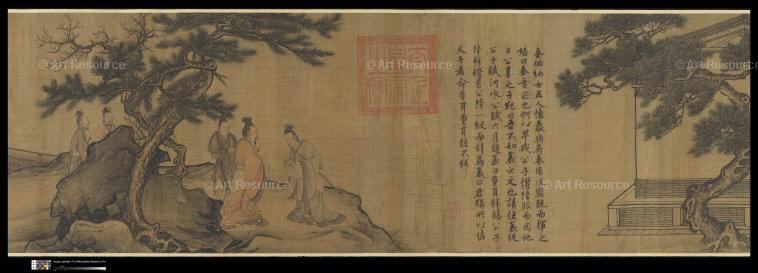 秦伯納女五人懷嬴與焉奉匜沃盥既而揮之
怒曰秦晉匹也何以卑我公子懼降服而囚他
日公享之子犯曰吾不如衰之文也請使衰從
公子賦河水公賦六月趙衰曰重耳拜賜公子
降拜稽首公降一級而辭焉衰曰君稱所以佐
天子者命重耳重耳敢不拜
© Art Resource
© Art Resource
© Art Resource
© Art Resource
© Art Resource
© Art Resource
© Art Resource
© Art Resource
© Art Resource